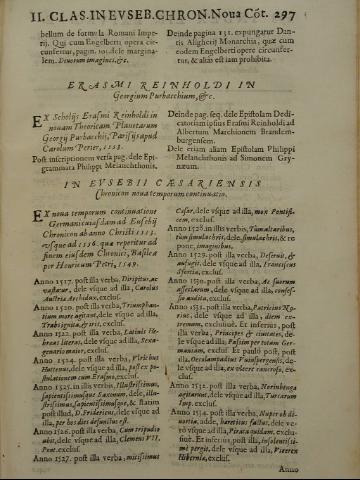 II. CLAS. IN EUSEB. CHRON. Noua Cōt. 297
bellum de formula Romani Imperij.
Qui cum Engelberti opera circumfertur,
pagin. 10. dele marginalem.
Deorum imagines, &c.
Deinde pagina 131. expurgatur Dantis
Aligherij Monarchia, quæ cum
eodem Engelberti opere circumfertur,
& aliàs est iam prohibita.
ERASMI REINHOLDI IN
Georgium Purbacchium, &c.
EX Scholijs Erasmi Reinholdi in
nouam Theoricam Planetarum
Georgij Purbacchij, Parisijs apud
Carolum Perier, 1553.
Post inscriptionem versa pag. dele Epigrammata
Philippi Melanchthonis.
Deinde pag. seq. dele Epistolam Dedicatoriam
ipsius Erasmi Reinholdi ad
Albertum Marchionem Brandemburgensem.
Dele etiam aliam Epistolam Philippi
Melanchthonis ad Simonem Grynæum.
IN EVSEBII CÆSARIENSIS
Chronicon noua temporum continuatio.
EX noua temporum continuatione
Germani cuiusdam ad Eusebij
Chronicon ab anno Christi 1513.
vsque ad 1516. quæ reperitur ad
finem eiusdem Chronici, Basileæ
per Henricum Petri, 1549.
Anno 1517. post illa verba, Diripitur, ac
vastatur, dele vsque ad illa, Carolus
Austriæ Archidux, exclus.
Anno 1520. post illa verba, Triumphantium
more agitant, dele vsque ad illa,
exclus.
Anno 1522. post illa verba, Latinis Hebræas
literas, dele vsque ad illa, Sexagenario
maior, exclus.
Anno 1524. post illa verba, Vlricus
Huttenus, dele vsque ad illa, post ex postulationem
cum Erasmo, exclus.
Anno 1525. in illis verbis, Illustrissimus,
sapientissimusque Saxonum, dele, illustrissimus,
sapientissimusque, & statim
post illud, D. Fridericus, dele vsque ad
illa, per hos dies defunctus est.
Anno 1526. post illa verba, Cum tripudio
abit, dele vsque ad illa, Clemens VII.
Pont. exclus.
Anno 1527. post illa verba, mitissimus
Cæsar, dele vsque ad illa, mox Pontificem,
exclus.
Anno 1528. in illis verbis, Sumtuaribus,
tum simulachris, dele, simulachris, & repone,
imaginibus.
Anno 1529. post illa verba, Deseruit, &
aufugit, dele vsque ad illa, Franciscus
Sfortia, exclus.
Anno 1530. post illa verba, Ac suarum
assertorum, dele vsque ad illa, confessio
audita, exclus.
Anno 1531. post illa verba, Patricius Norinc,
dele vsque ad illa, diem extremum,
exclusiuè. Et inferius, post
illa verba, Principes & ciuitates, dele
vsque ad illa, Passim per totam Germaniam,
exclus. Et paulò post, post
illa, Oecolampadius Vuinspergensis, dele
vsque ad illa, ex vlcere cancroso, exclus.
Anno 1532. post illa verba, Norimberga
agitatur, dele vsque ad illa, Turcarum
Imp. exclus.
Anno 1534. post illa verba, Nuper ab diuortia,
adde, hæreticus factus, dele verò
vsque ad illa, exclusiuè.
Et inferius, post illa, insolentissimè
pergit, dele vsque ad illa, Vicerex
Hiberniæ, exclus.
Anno